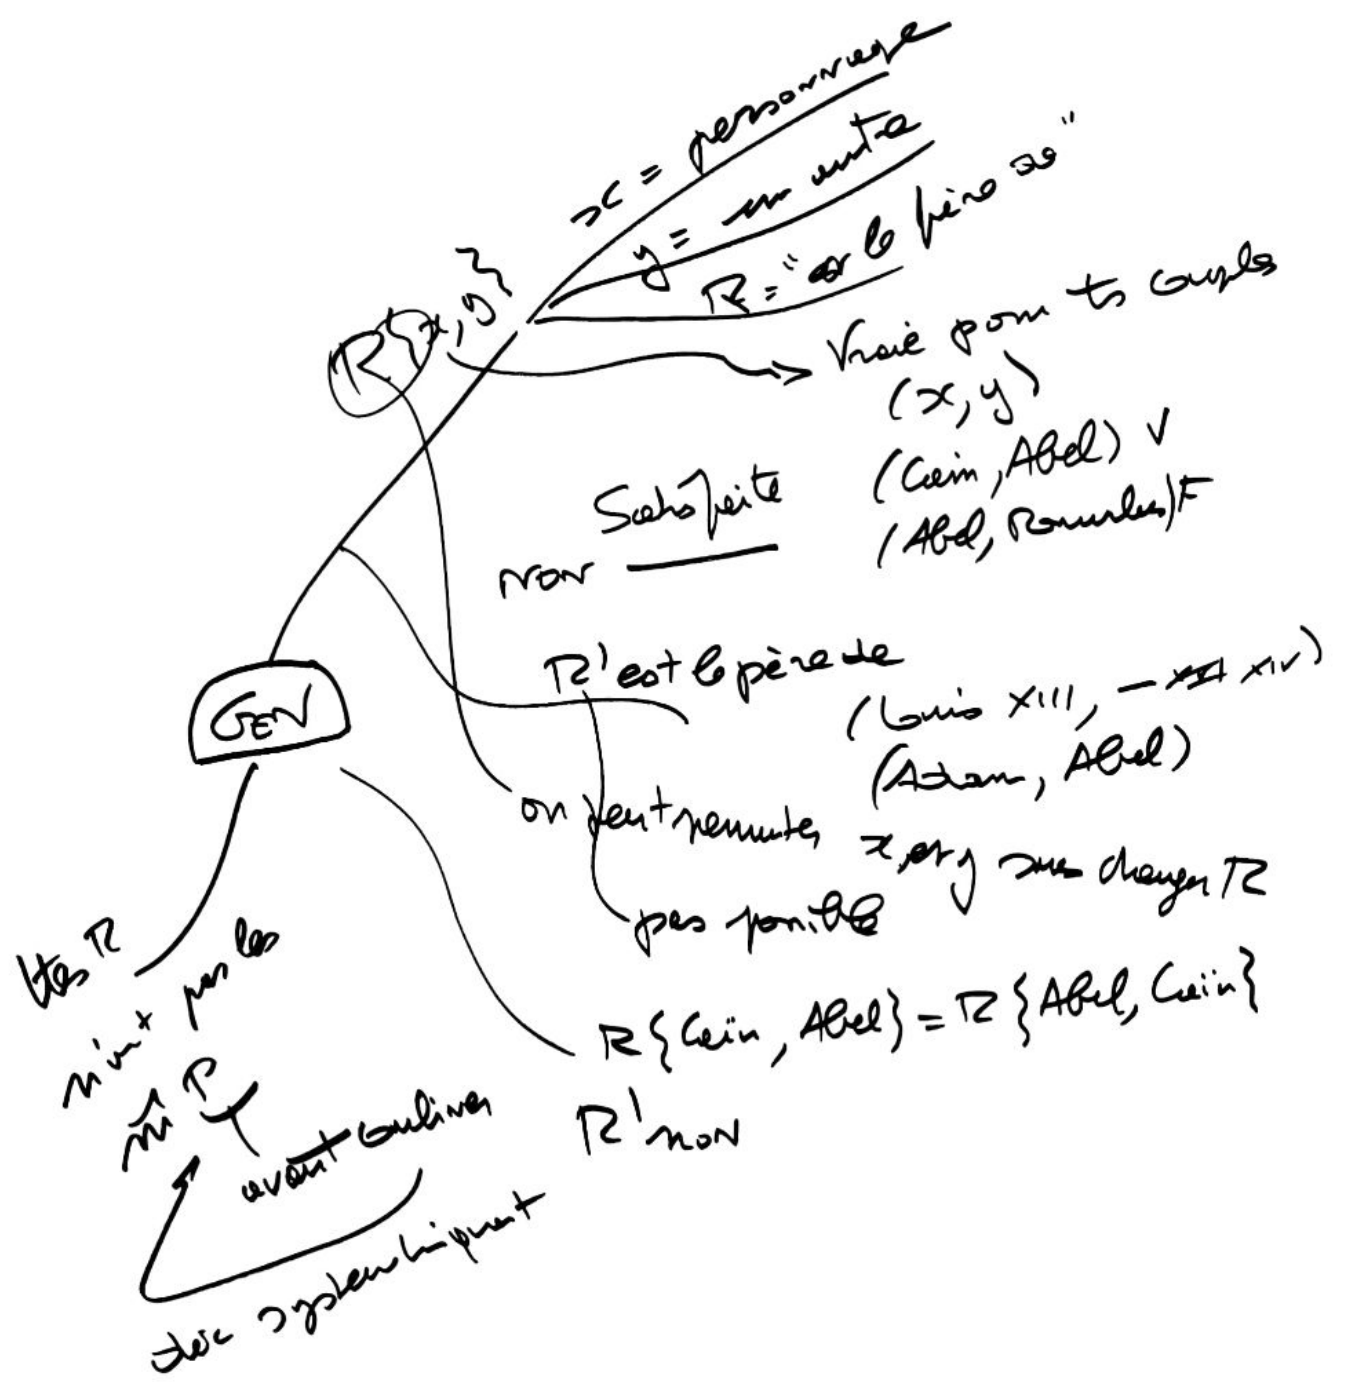 x = personnage
y = un autre
R = "est le frère de"
R{x, y}
Vraie pour ts couples
(x, y)
(Caïn, Abel) V
(Abel, Romulus) F
Satisfaite
NON
R' est le père de
(Louis XIII, — XIV)
(Adam, Abel)
GEN
on peut permuter x et y sans changer R
pas possible
R{Caïn, Abel} = R{Abel, Caïn}
R' non
ttes R
n'ont pas les
m̂ P
avant
donc systematiquement